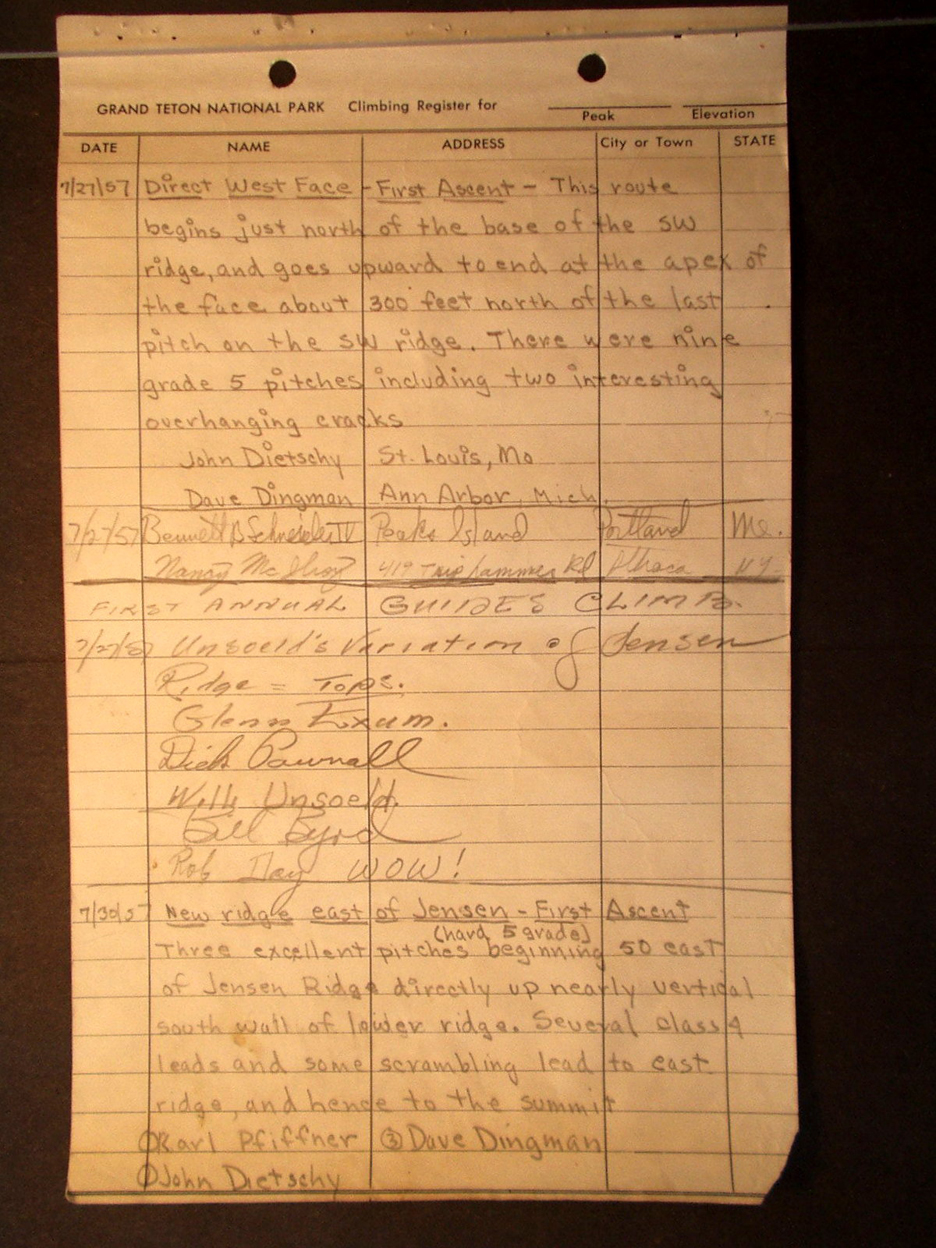 GRAND TETON NATIONAL PARK Climbing Register for
Peak Elevation
DATE NAME ADDRESS City or Town STATE
7/27/57 Direct West Face - First Ascent - This route
begins just north of the base of the SW
ridge, and goes upward to end at the apex of
the face about 300 feet north of the last
pitch on the SW ridge. There were nine
grade 5 pitches including two interesting
overhanging cracks
John Dietschy St. Louis, Mo
Dave Dingman Ann Arbor, Mich.
7/27/57 Bennett Peaks Island Portland Me.
Nancy 419 Triphammer Rd Ithaca N.Y.
FIRST ANNUAL GUIDES CLIMB.
7/27/57 Unsoeld's Variation of Jensen
Ridge = Tops.
Glenn Exum.
Dick Pownall
Willi Unsoeld.
Bill Byrd
Rob Day WOW!
7/30/57 New ridge east of Jensen - First Ascent
(hard 5 grade)
Three excellent pitches beginning 50 east
of Jensen Ridge directly up nearly vertical
south wall of lower ridge. Several class 4
leads and some scrambling lead to east
ridge, and hence to the summit
Karl Pfiffner ③ Dave Dingman
John Dietschy